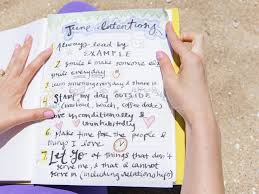 June Intentions
Always lead by
EXAMPLE
1. Smile & make someone else
smile everyday
2. something everyday & share it
3. START my day OUTSIDE
(workout, beach, coffee date)
Love unconditionally &
uninhibitedly
6. Make time for the people &
things I love
7. LET GO of things that don't
serve me, & that I cannot
serve in (including relationships)